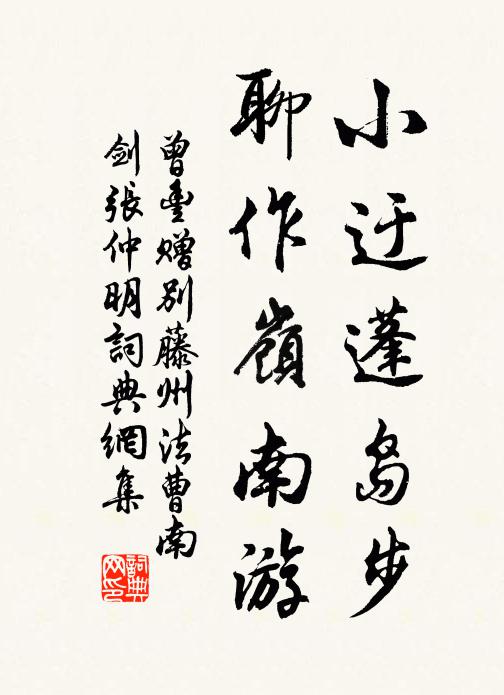 小迂蓬岛步
聊作嶺南游
曾豐贈别藤州法曹南
剑張仲明詞典網集
詞典
网印